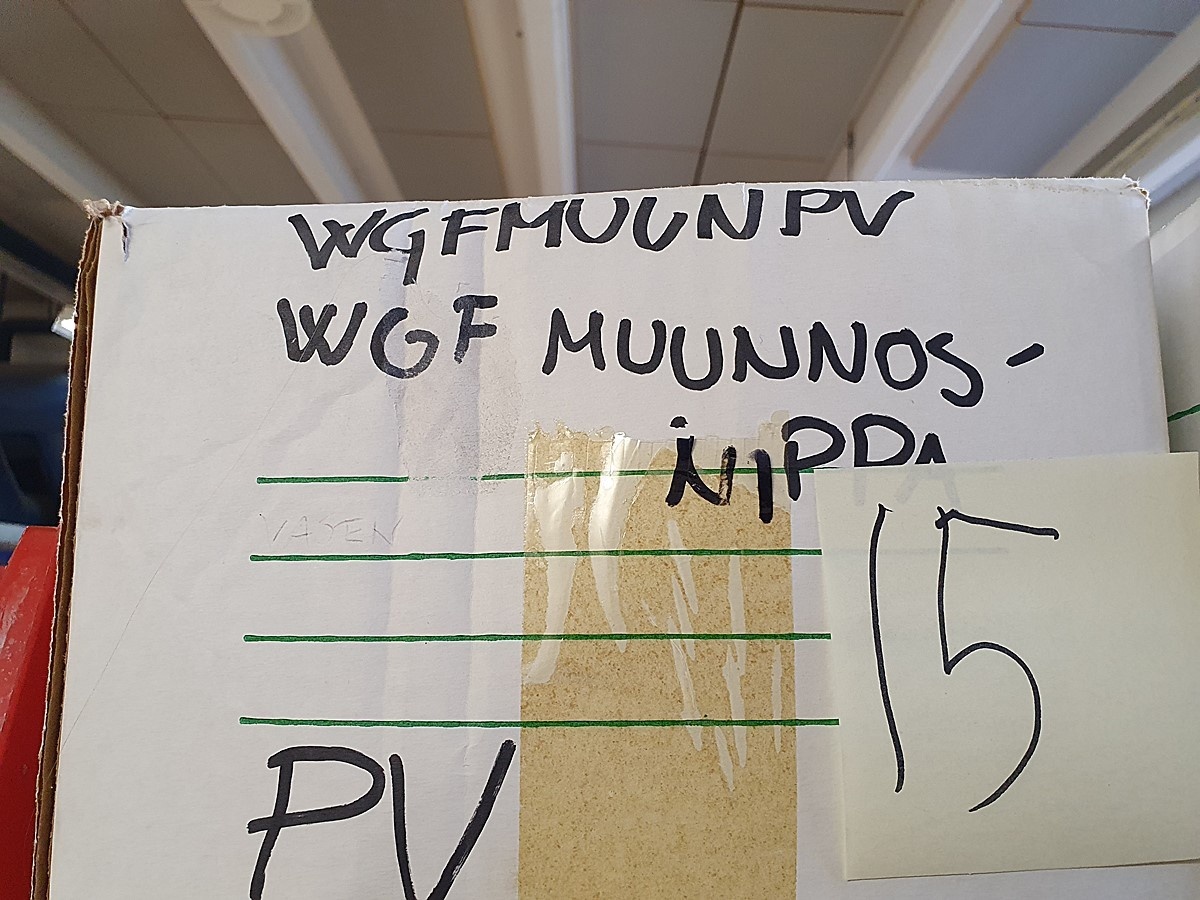 WGFMUUNPV
WGF MUUNNOS-
NIPPA
15
PV